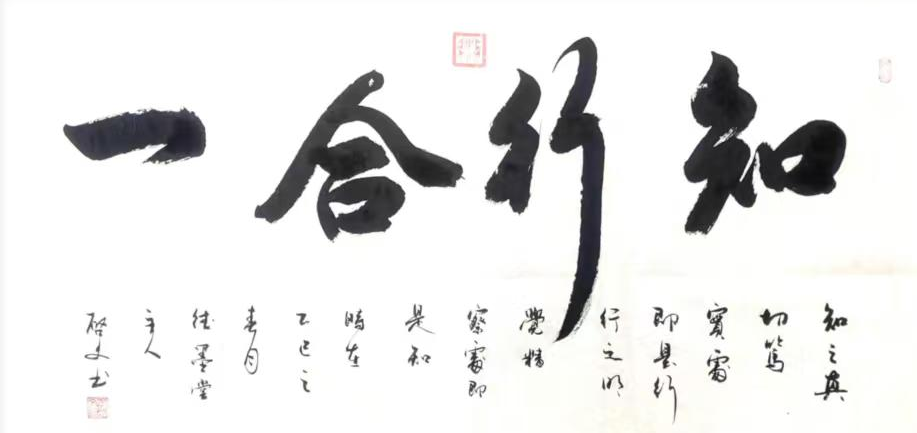 知行合一
知之真
切篤
實處
即是行
行之明
覺精
察處即
是知
時在
乙巳之
春月
墨堂
主人
啓文书